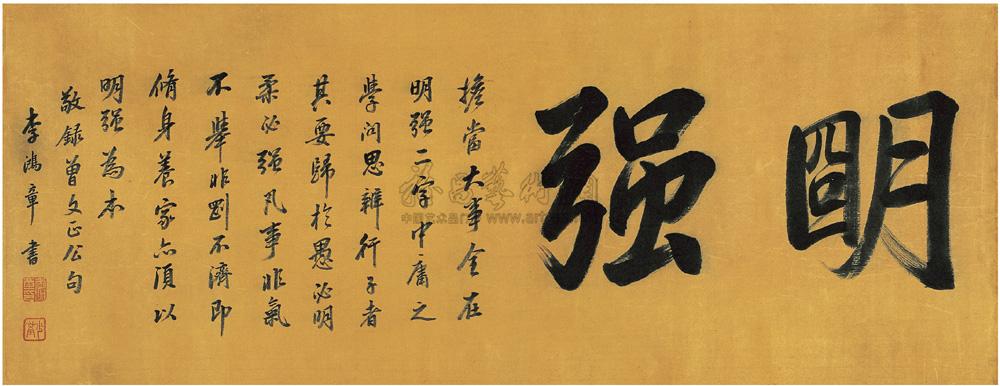 朙强
擔當大事全在
明强二字中庸之
學问思辨行五者
其要歸於愚必明
柔必强凡事非氣
不舉非剛不濟即
脩身養家亦須以
明强為本
敬録曾文正公句
李鴻章書